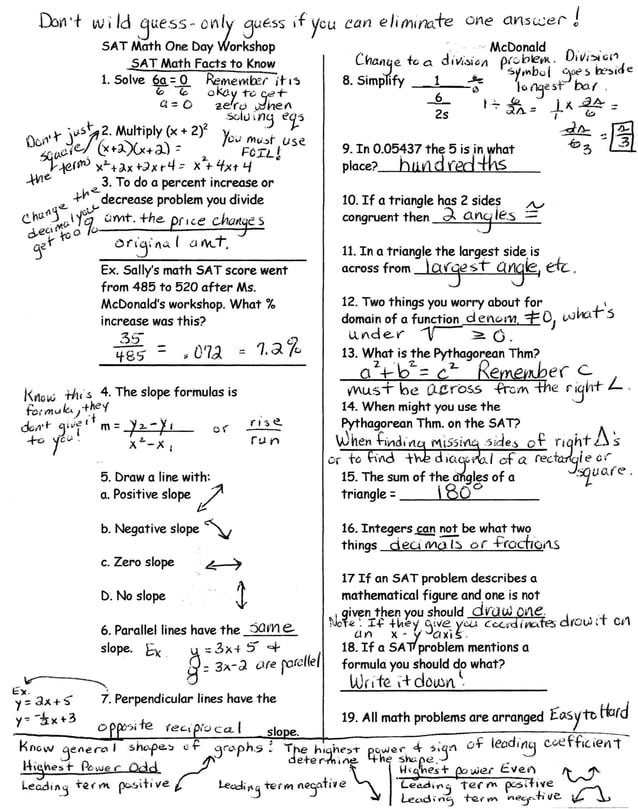 Don't wild guess - only guess if you can eliminate one answer!
SAT Math One Day Workshop
SAT Math Facts to Know
1. Solve 6a = 0 Remember it is
6 6 okay to get
a = 0 zero when
solving eqs
Don't just square the terms
2. Multiply (x + 2)²
(x+2)(x+2) = You must use
x²+2x+2x+4 = x²+4x+4 FOIL!
3. To do a percent increase or
decrease problem you divide
Change the decimal you get to a %
amt. the price changes
original amt.
Ex. Sally's math SAT score went
from 485 to 520 after Ms.
McDonald's workshop. What %
increase was this?
35
485 = .072 = 7.2%
Know this formula, they don't give it to you!
4. The slope formulas is
m = y₂-y₁ or rise
x²-x₁ run
5. Draw a line with:
a. Positive slope
b. Negative slope
c. Zero slope
D. No slope
6. Parallel lines have the same
slope. Ex. y = 3x + 5 +
y = 3x-2 are parallel
Ex.
y = 2x+5
y = -½x+3
7. Perpendicular lines have the
opposite reciprocal slope.
McDonald
Change to a division problem. Division
symbol goes beside
longest bar.
8. Simplify 1
6
2s
1 ÷ 6/2s = 1/1 x 2s/6 =
2s/6 3 = s/3
9. In 0.05437 the 5 is in what
place? hundredths
10. If a triangle has 2 sides
congruent then 2 angles ≅
11. In a triangle the largest side is
across from largest angle, etc.
12. Two things you worry about for
domain of a function denom. ≠ 0, what's
under √ ≥ 0.
13. What is the Pythagorean Thm?
a² + b² = c² Remember c
must be across from the right ∠.
14. When might you use the
Pythagorean Thm. on the SAT?
When finding missing sides of right Δ's
or to find the diagonal of a rectangle or
square.
15. The sum of the angles of a
triangle = 180°
16. Integers can not be what two
things decimals or fractions
17 If an SAT problem describes a
mathematical figure and one is not
given then you should draw one.
Note: If they give you coordinates draw it on
an x - y axis.
18. If a SAT problem mentions a
formula you should do what?
Write it down!
19. All math problems are arranged Easy to Hard
Know general shapes of graphs: The highest power & sign of leading coefficient
determine the shape.
Highest Power Odd
Leading term positive
Leading term negative
Highest power Even
Leading term positive
Leading term negative